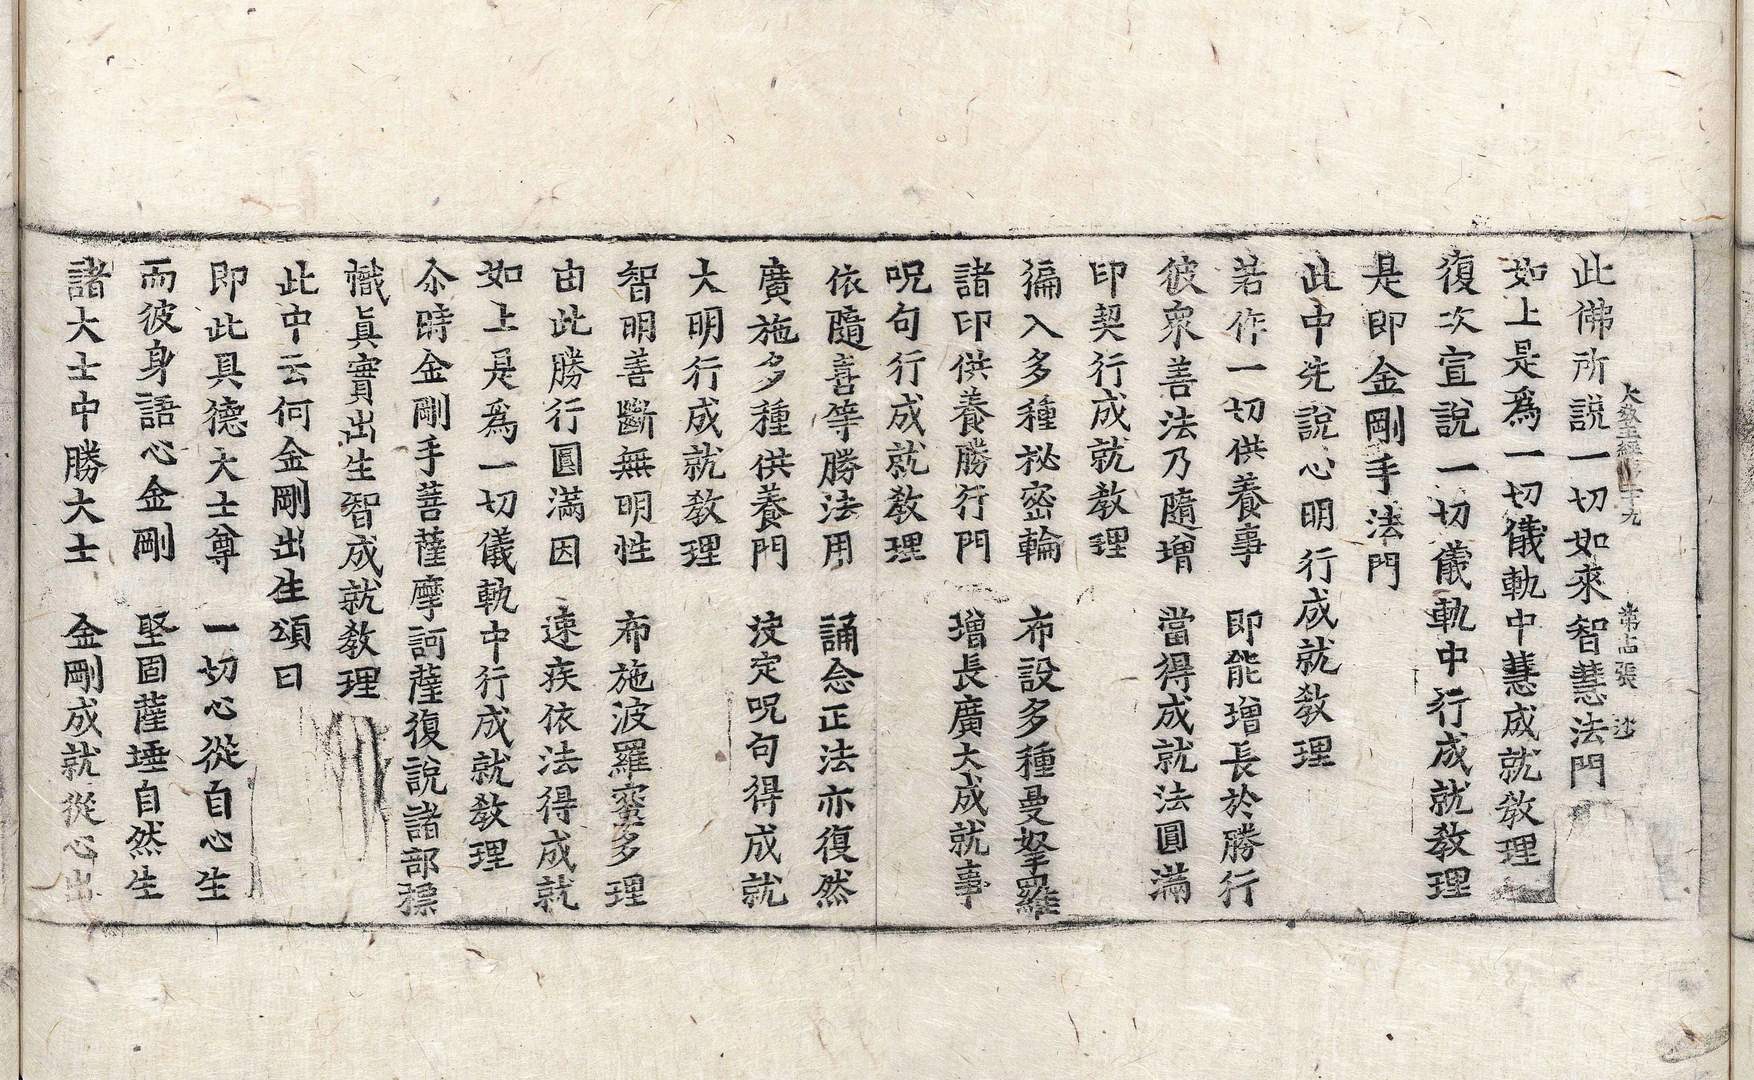 此佛所說一切如來智慧法門
如上是為一切儀軌中慧成就教理
復次宣說一切儀軌中行成就教理
是即金剛手法門
此中先說心明行成就教理
若作一切供養事　即能增長於勝行
彼眾善法乃隨增　當得成就法圓滿
印契行成就教理
徧入多種祕密輪　布設多種曼拏羅
諸印供養勝行門　增長廣大成就事
呪句行成就教理
依隨喜等勝法用　誦念正法亦復然
廣施多種供養門　決定呪句得成就
大明行成就教理
智明善斷無明性　布施波羅蜜多理
由此勝行圓滿因　速疾依法得成就
如上是為一切儀軌中行成就教理
尒時金剛手菩薩摩訶薩復說諸部摽
幟眞實出生智成就教理
此中云何金剛出生頌曰
即此具德大士尊　一切心從自心生
而彼身語心金剛　堅固薩埵自然生
諸大士中勝大士　金剛成就從心出